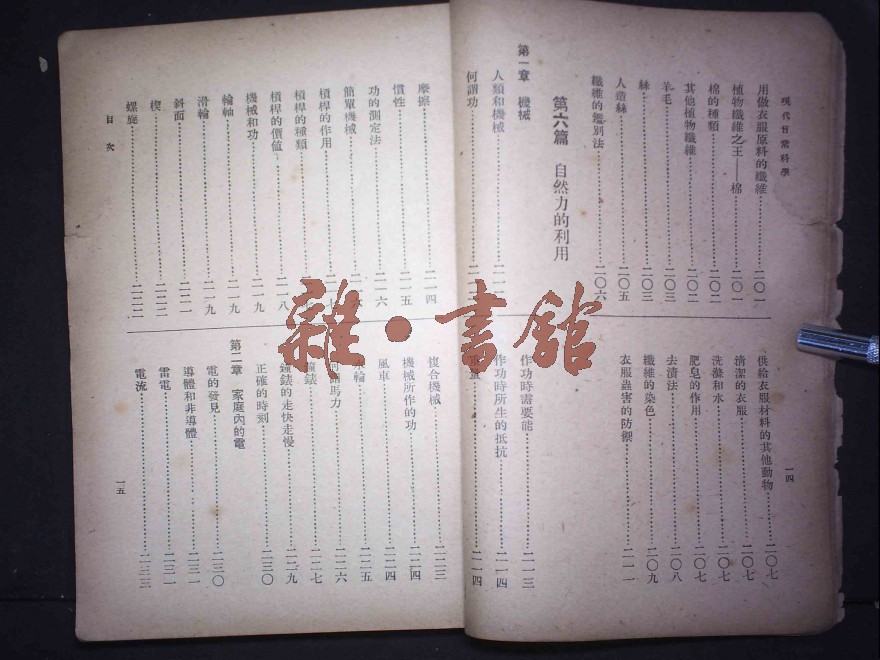 現代日常科學
一四
用做衣服原料的纖維…………二〇一
植物纖維之王——棉…………二〇一
棉的種類…………二〇二
其他植物纖維…………二〇二
羊毛…………二〇三
絲…………二〇三
人造絲…………二〇五
纖維的鑑別法…………二〇六
供給衣服材料的其他動物…………二〇七
清潔的衣服…………二〇七
洗滌和水…………二〇七
肥皂的作用…………二〇七
去漬法…………二〇八
纖維的染色…………二〇九
衣服蟲害的防禦…………二一一
第六篇 自然力的利用
第一章 機械
人類和機械…………二一
何謂功…………二一
作功時需要能…………二一三
作功時所生的抵抗…………二一四
二一四
摩擦…………二一四
慣性…………二一五
功的測定法…………二一六
簡單機械…………二一六
槓桿的作用…………二一七
槓桿的種類
槓桿的價值…………二一八
機械和功…………二一九
輪軸…………二一九
滑輪…………二一九
斜面…………二二一
楔…………二二二
螺旋…………二二二
複合機械…………二二三
機械所作的功…………二二四
風車…………二二四
水輪…………二二五
何謂馬力…………二二六
鐘錶…………二二七
鐘錶的走快走慢…………二二九
正確的時刻…………二三〇
第二章 家庭內的電
電的發見…………二三〇
導體和非導體…………二三一
雷電…………二三一
電流…………二三三
目次
一五
雜·書館